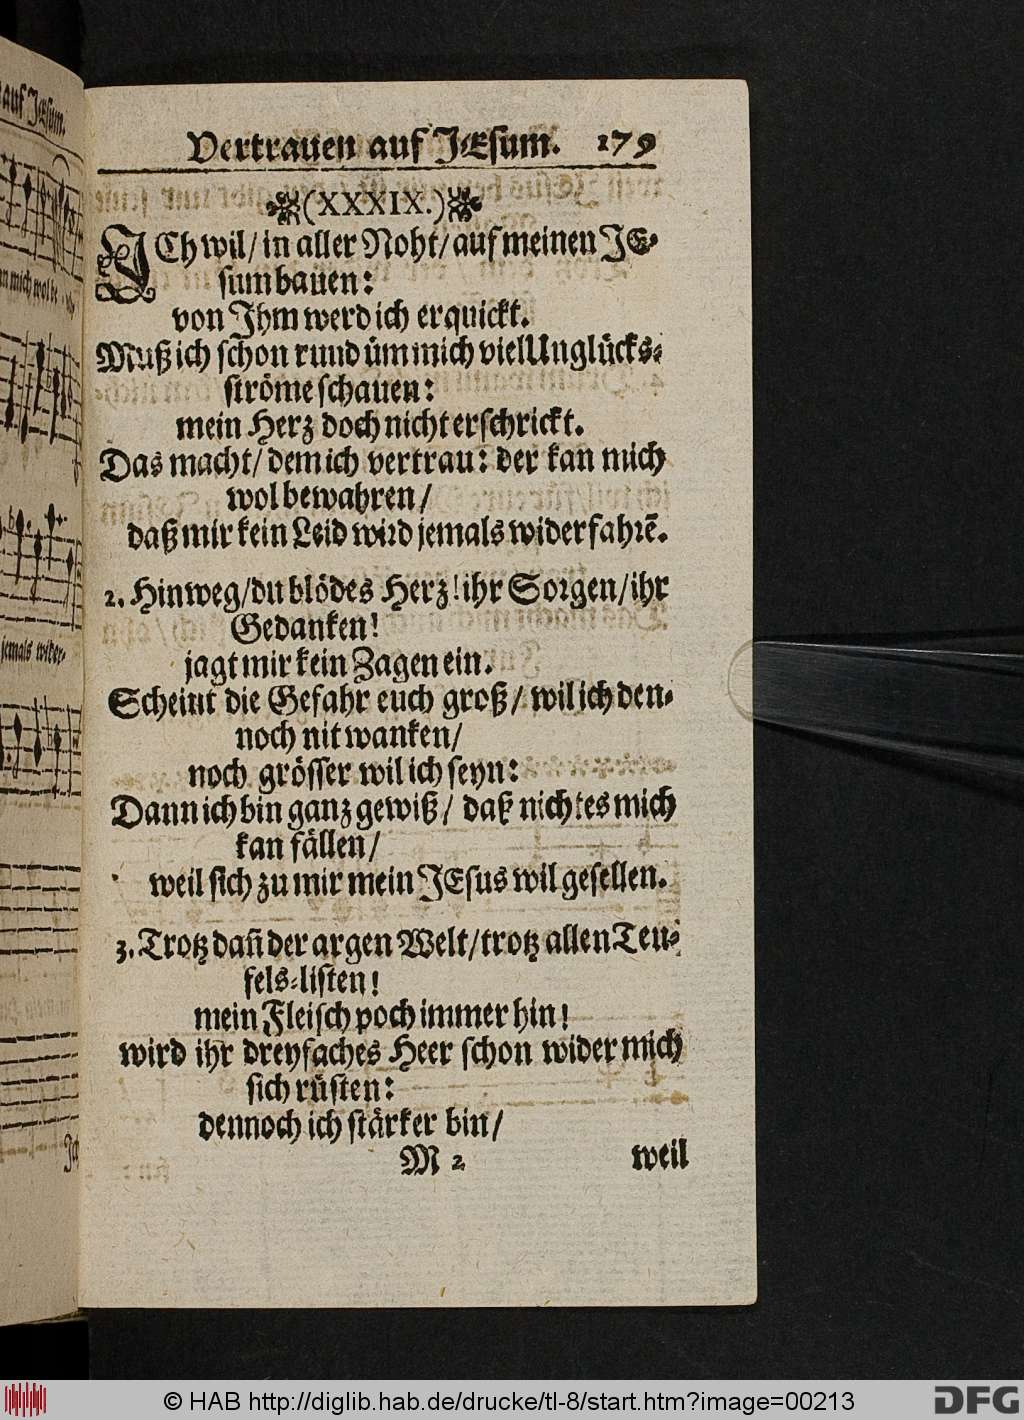 auf JEsum.
Vertrauen auf JEsum. 179
(XXXIX.)
ICh wil/ in aller Noht/ auf meinen JE-
sum bauen:
von Jhm werd ich erquickt.
Muß ich schon rund üm mich viel Unglücks-
ströme schauen:
mein Herz doch nicht erschrickt.
Das macht/ dem ich vertrau: der kan mich
wol bewahren/
daß mir kein Leid wird jemals widerfahrẽ.
2. Hinweg/ du blödes Herz! ihr Sorgen/ ihr
Gedanken!
jagt mir kein Zagen ein.
Scheint die Gefahr euch groß/ wil ich den-
noch nit wanken/
noch grösser wil ich seyn:
Dann ich bin ganz gewiß/ daß nichtes mich
kan fällen/
weil sich zu mir mein JEsus wil gesellen.
jemals wider-
3. Trotz dañ der argen Welt/ trotz allen Teu-
fels-listen!
mein Fleisch poch immer hin!
wird ihr dreyfaches Heer schon wider mich
sich rüsten:
dennoch ich stärker bin/
M 2 weil
© HAB http://diglib.hab.de/drucke/tl-8/start.htm?image=00213
DFG